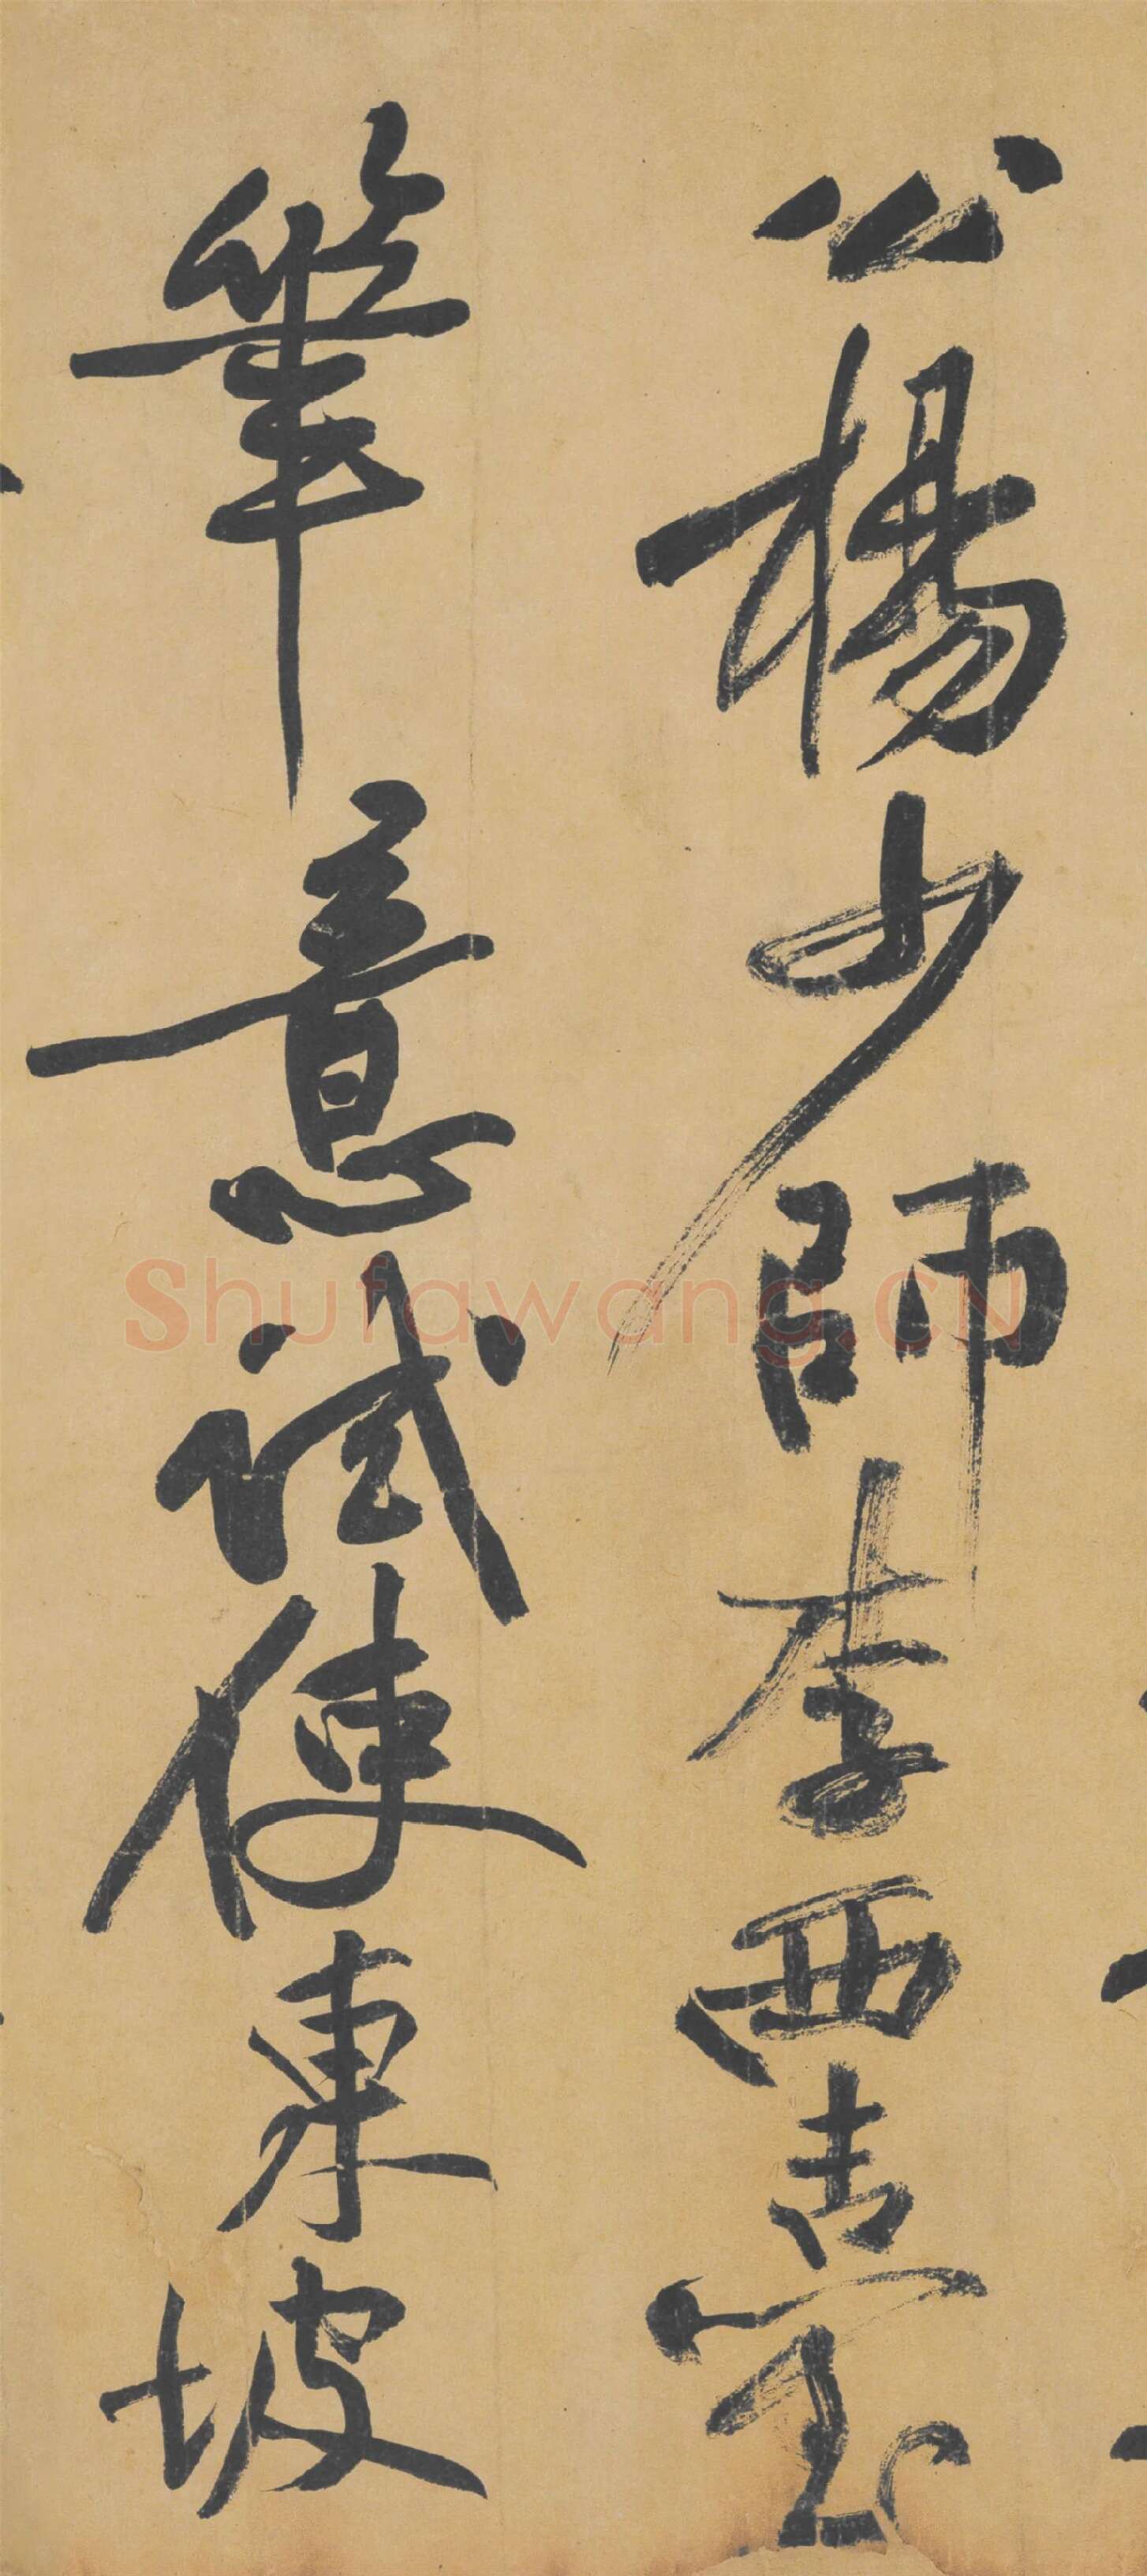 公楊少師李西臺
筆意試使東坡
Shufawang.CN